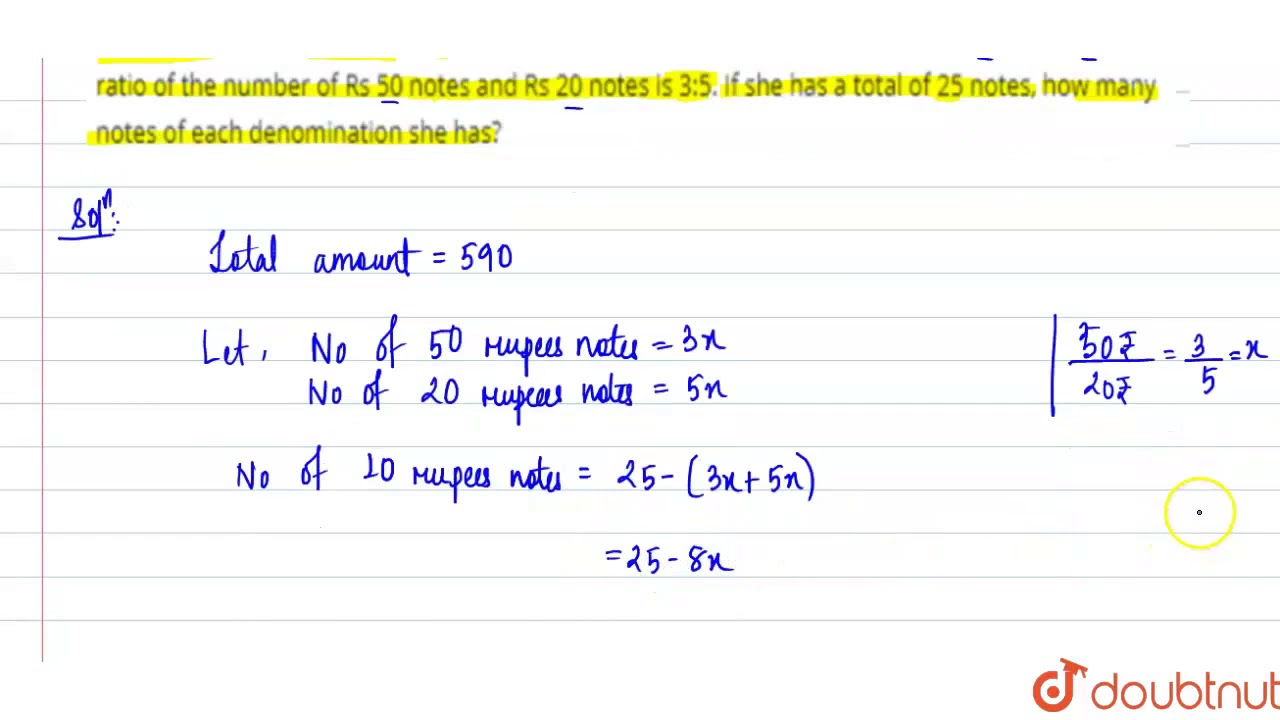 ratio of the number of Rs 50 notes and Rs 20 notes is 3:5. If she has a total of 25 notes, how many
notes of each denomination she has?
Solⁿ:
Total amount = 590
Let, No of 50 rupees notes = 3x
50₹/20₹ = 3/5 = x
No of 20 rupees notes = 5x
No of 10 rupees notes = 25 - (3x + 5x)
= 25 - 8x
doubtnut